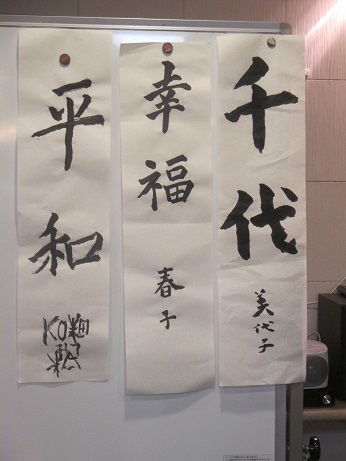 千代
美代子
幸福
春子
平和
KO